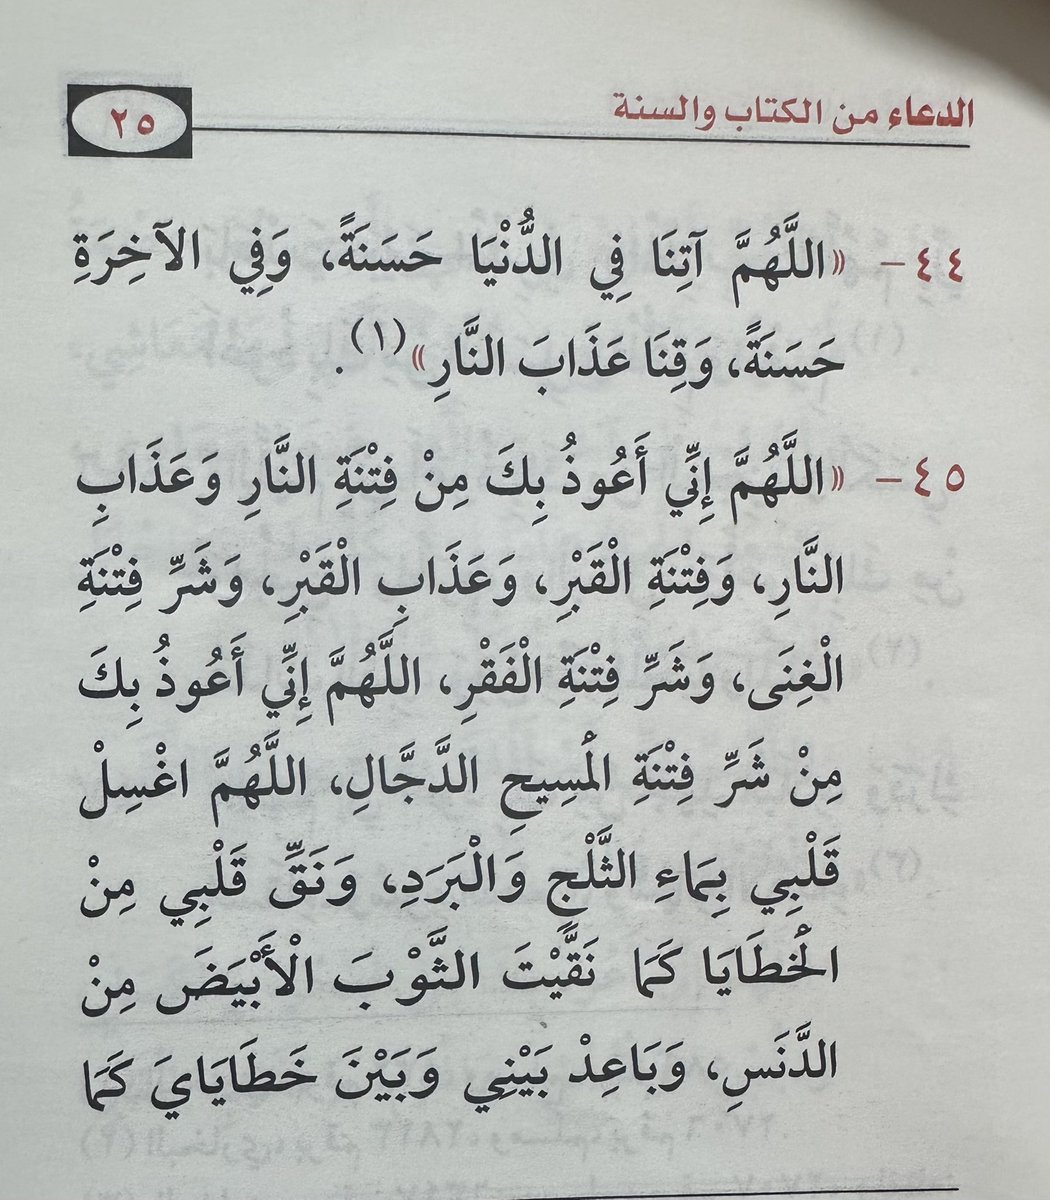 الدعاء من الكتاب والسنة
٢٥
٤٤- «اللَّهُمَّ آتِنَا فِي الدُّنْيَا حَسَنَةً، وَفِي الآخِرَةِ
حَسَنَةً، وَقِنَا عَذَابَ النَّارِ»(١).
٤٥- «اللَّهُمَّ إِنِّي أَعُوذُ بِكَ مِنْ فِتْنَةِ النَّارِ وَعَذَابِ
النَّارِ، وَفِتْنَةِ الْقَبْرِ، وَعَذَابِ الْقَبْرِ، وَشَرِّ فِتْنَةِ
الْغِنَى، وَشَرِّ فِتْنَةِ الْفَقْرِ، اللَّهُمَّ إِنِّي أَعُوذُ بِكَ
مِنْ شَرِّ فِتْنَةِ الْمَسِيحِ الدَّجَّالِ، اللَّهُمَّ اغْسِلْ
قَلْبِي بِمَاءِ الثَّلْجِ وَالْبَرَدِ، وَنَقِّ قَلْبِي مِنْ
الْخَطَايَا كَمَا نَقَّيْتَ الثَّوْبَ الْأَبْيَضَ مِنْ
الدَّنَسِ، وَبَاعِدْ بَيْنِي وَبَيْنَ خَطَايَايَ كَمَا